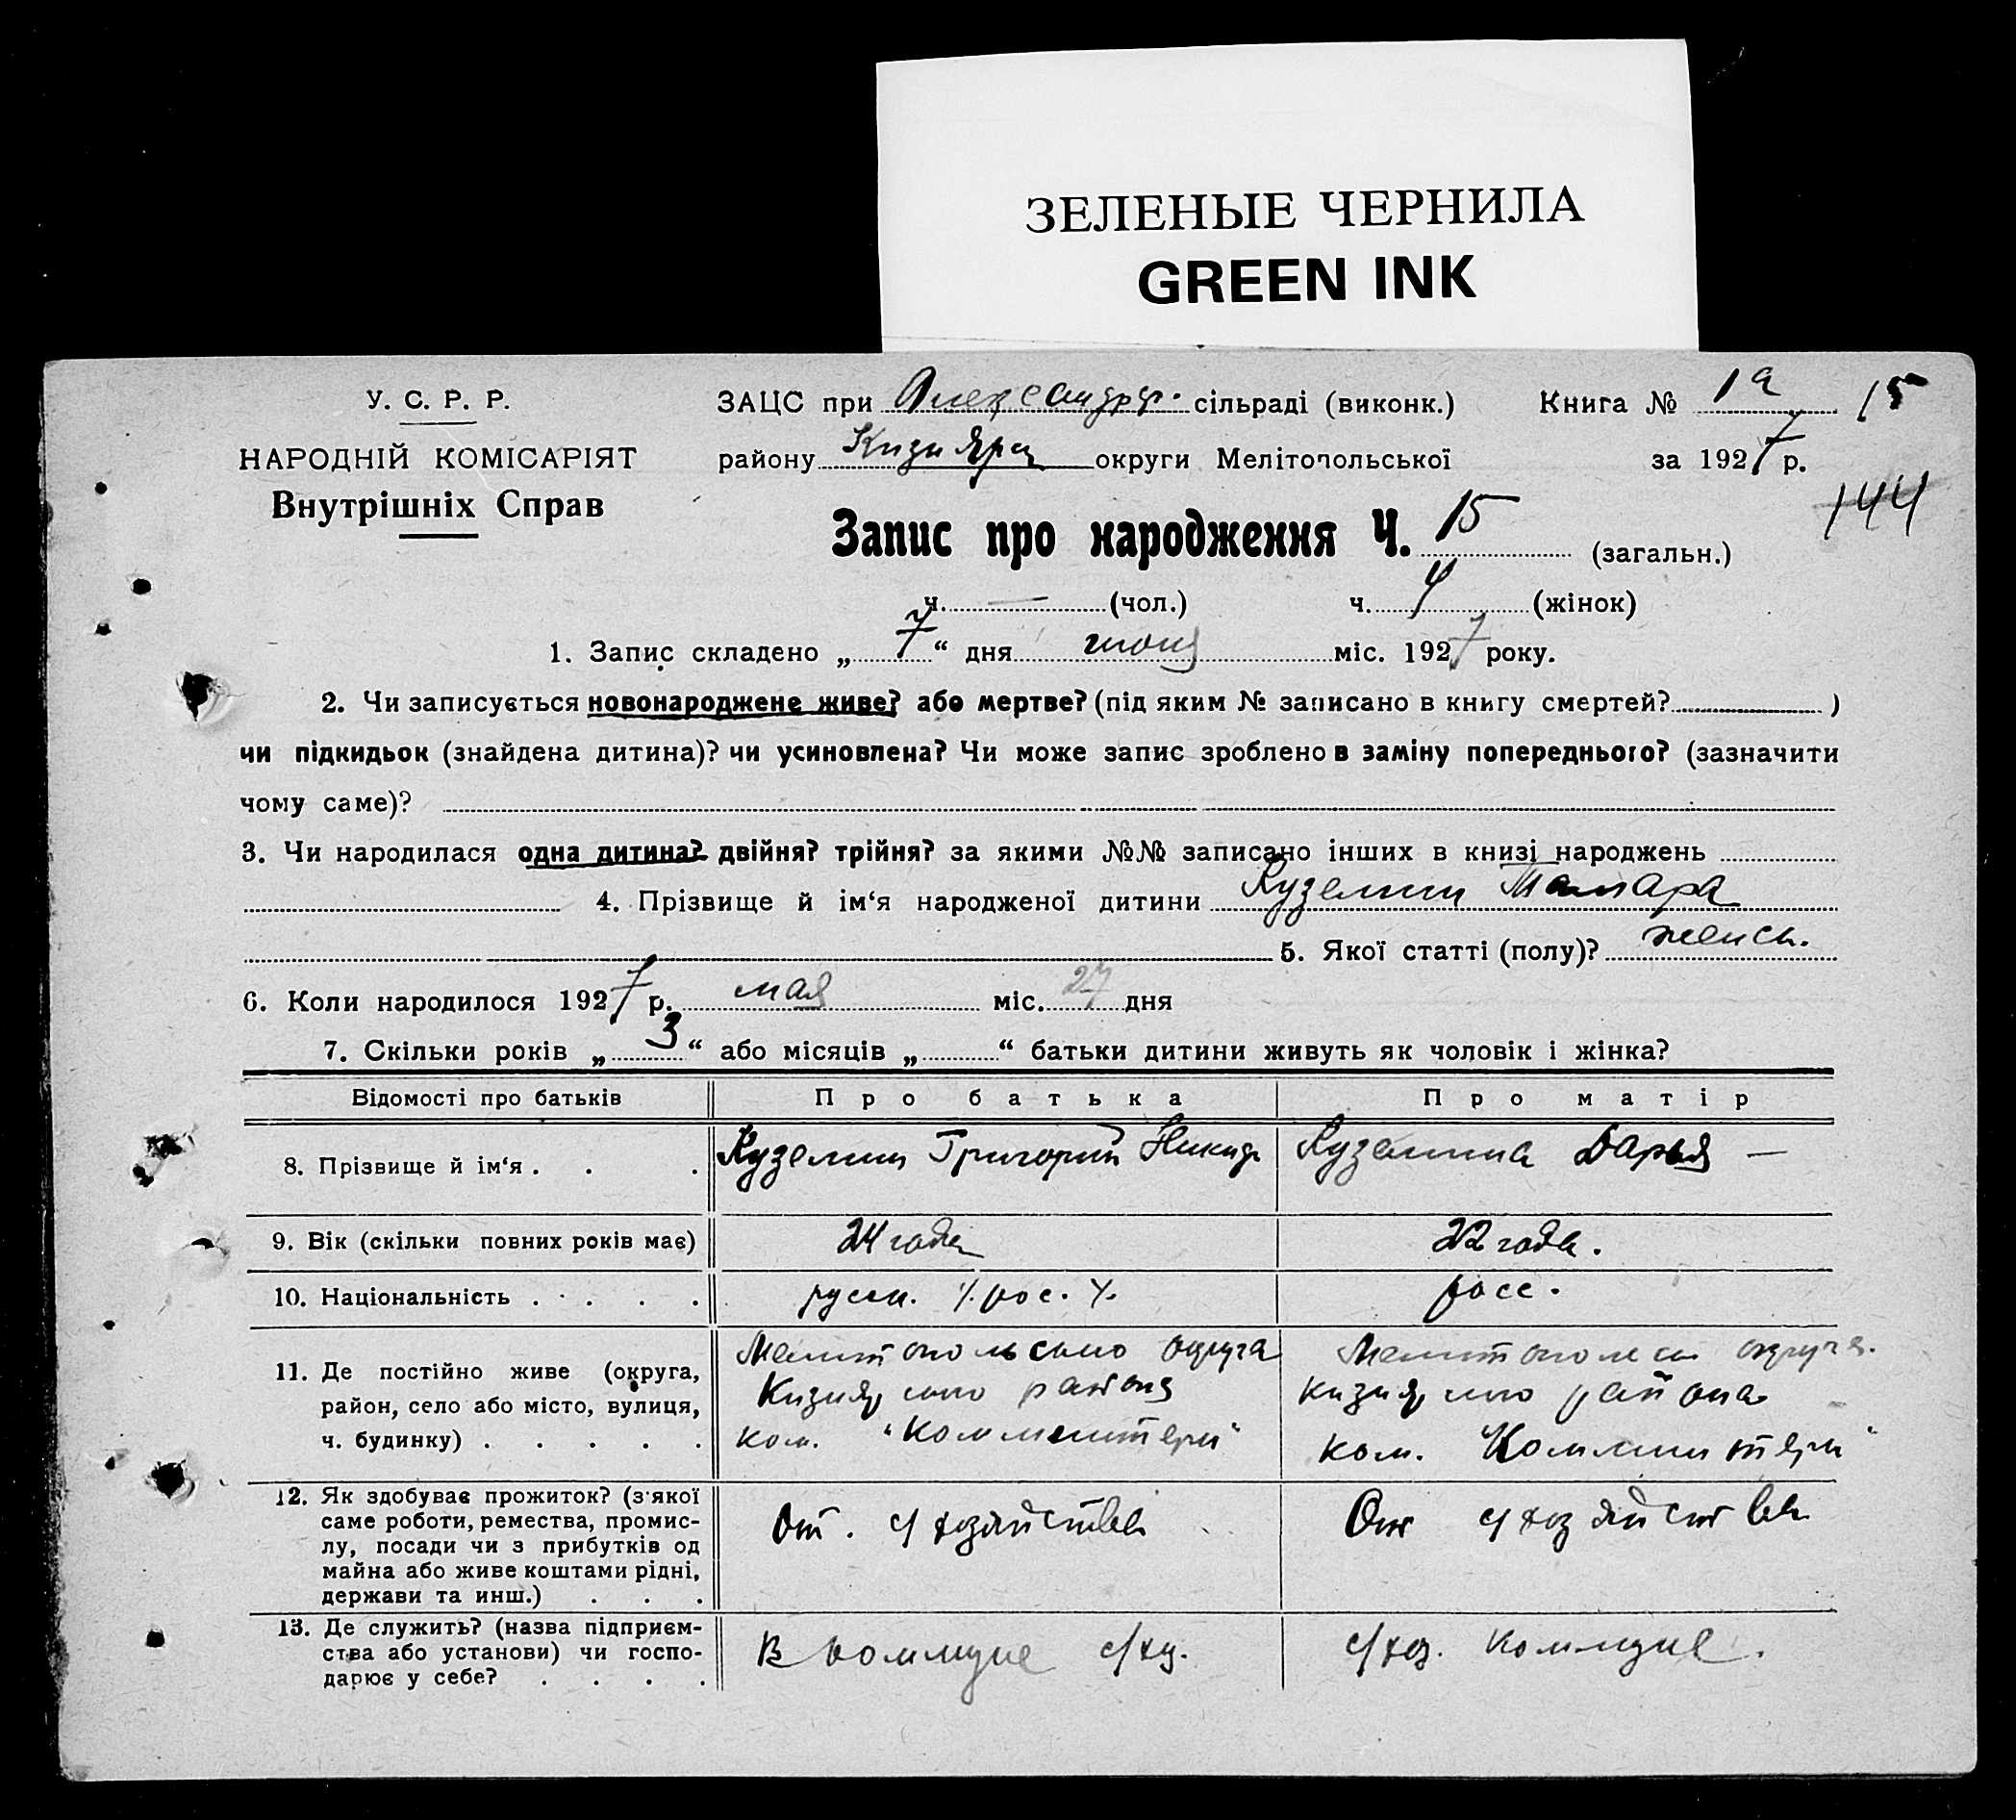 ЗЕЛЕНЫЕ ЧЕРНИЛА
GREEN INK
У. С. Р. Р.
НАРОДНІЙ КОМІСАРІЯТ
Внутрішніх Справ
ЗАЦС при Александр. сільраді (виконк.) Книга № 1а 15
району округи Мелітопольської за 1927 р.
144
Запис про народження Ч. 15 (загальн.)
ч. — (чол.) ч. (жінок)
1. Запис складено „ 7 “ дня июня міс. 1927 року.
2. Чи записується новонароджене живе? або мертве? (під яким № записано в книгу смертей? )
чи підкидьок (знайдена дитина)? чи усиновлена? Чи може запис зроблено в заміну попереднього? (зазначити
чому саме)?
3. Чи народилася одна дитина? двійня? трійня? за якими №№ записано інших в книзі народжень
4. Прізвище й ім‘я народженої дитини Куземин Тамара
5. Якої статті (полу)? женск.
6. Коли народилося 1927 р. мая міс. 27 дня
7. Скільки років „ 3 “ або місяців „ “ батьки дитини живуть як чоловік і жінка?
Відомості про батьків Про батька Про матір
8. Прізвище й ім‘я . . . Куземин Григорий Никид Куземина Дарья —
9. Вік (скільки повних років має) 24 года 22 года.
10. Національність . . . . . русск. рос. росс.
11. Де постійно живе (округа,
район, село або місто, вулиця,
ч. будинку) . . . . .
Мелитопольского округа
Кизияр ского района
ком. "Комминтерн"
Мелитопольск округа.
кизияр ского района
ком. Комминтерн"
12. Як здобуває прожиток? (з'якої
саме роботи, ремества, промис-
лу, посади чи з прибутків од
майна або живе коштами рідні,
держави та инш.) . . .
От. с/хозяйства
От с/хозяйства
13. Де служить? (назва підприєм-
ства або установи) чи госпо-
дарює у себе? . . . .
В коммуне с/хоз.
с/хоз. коммуне.